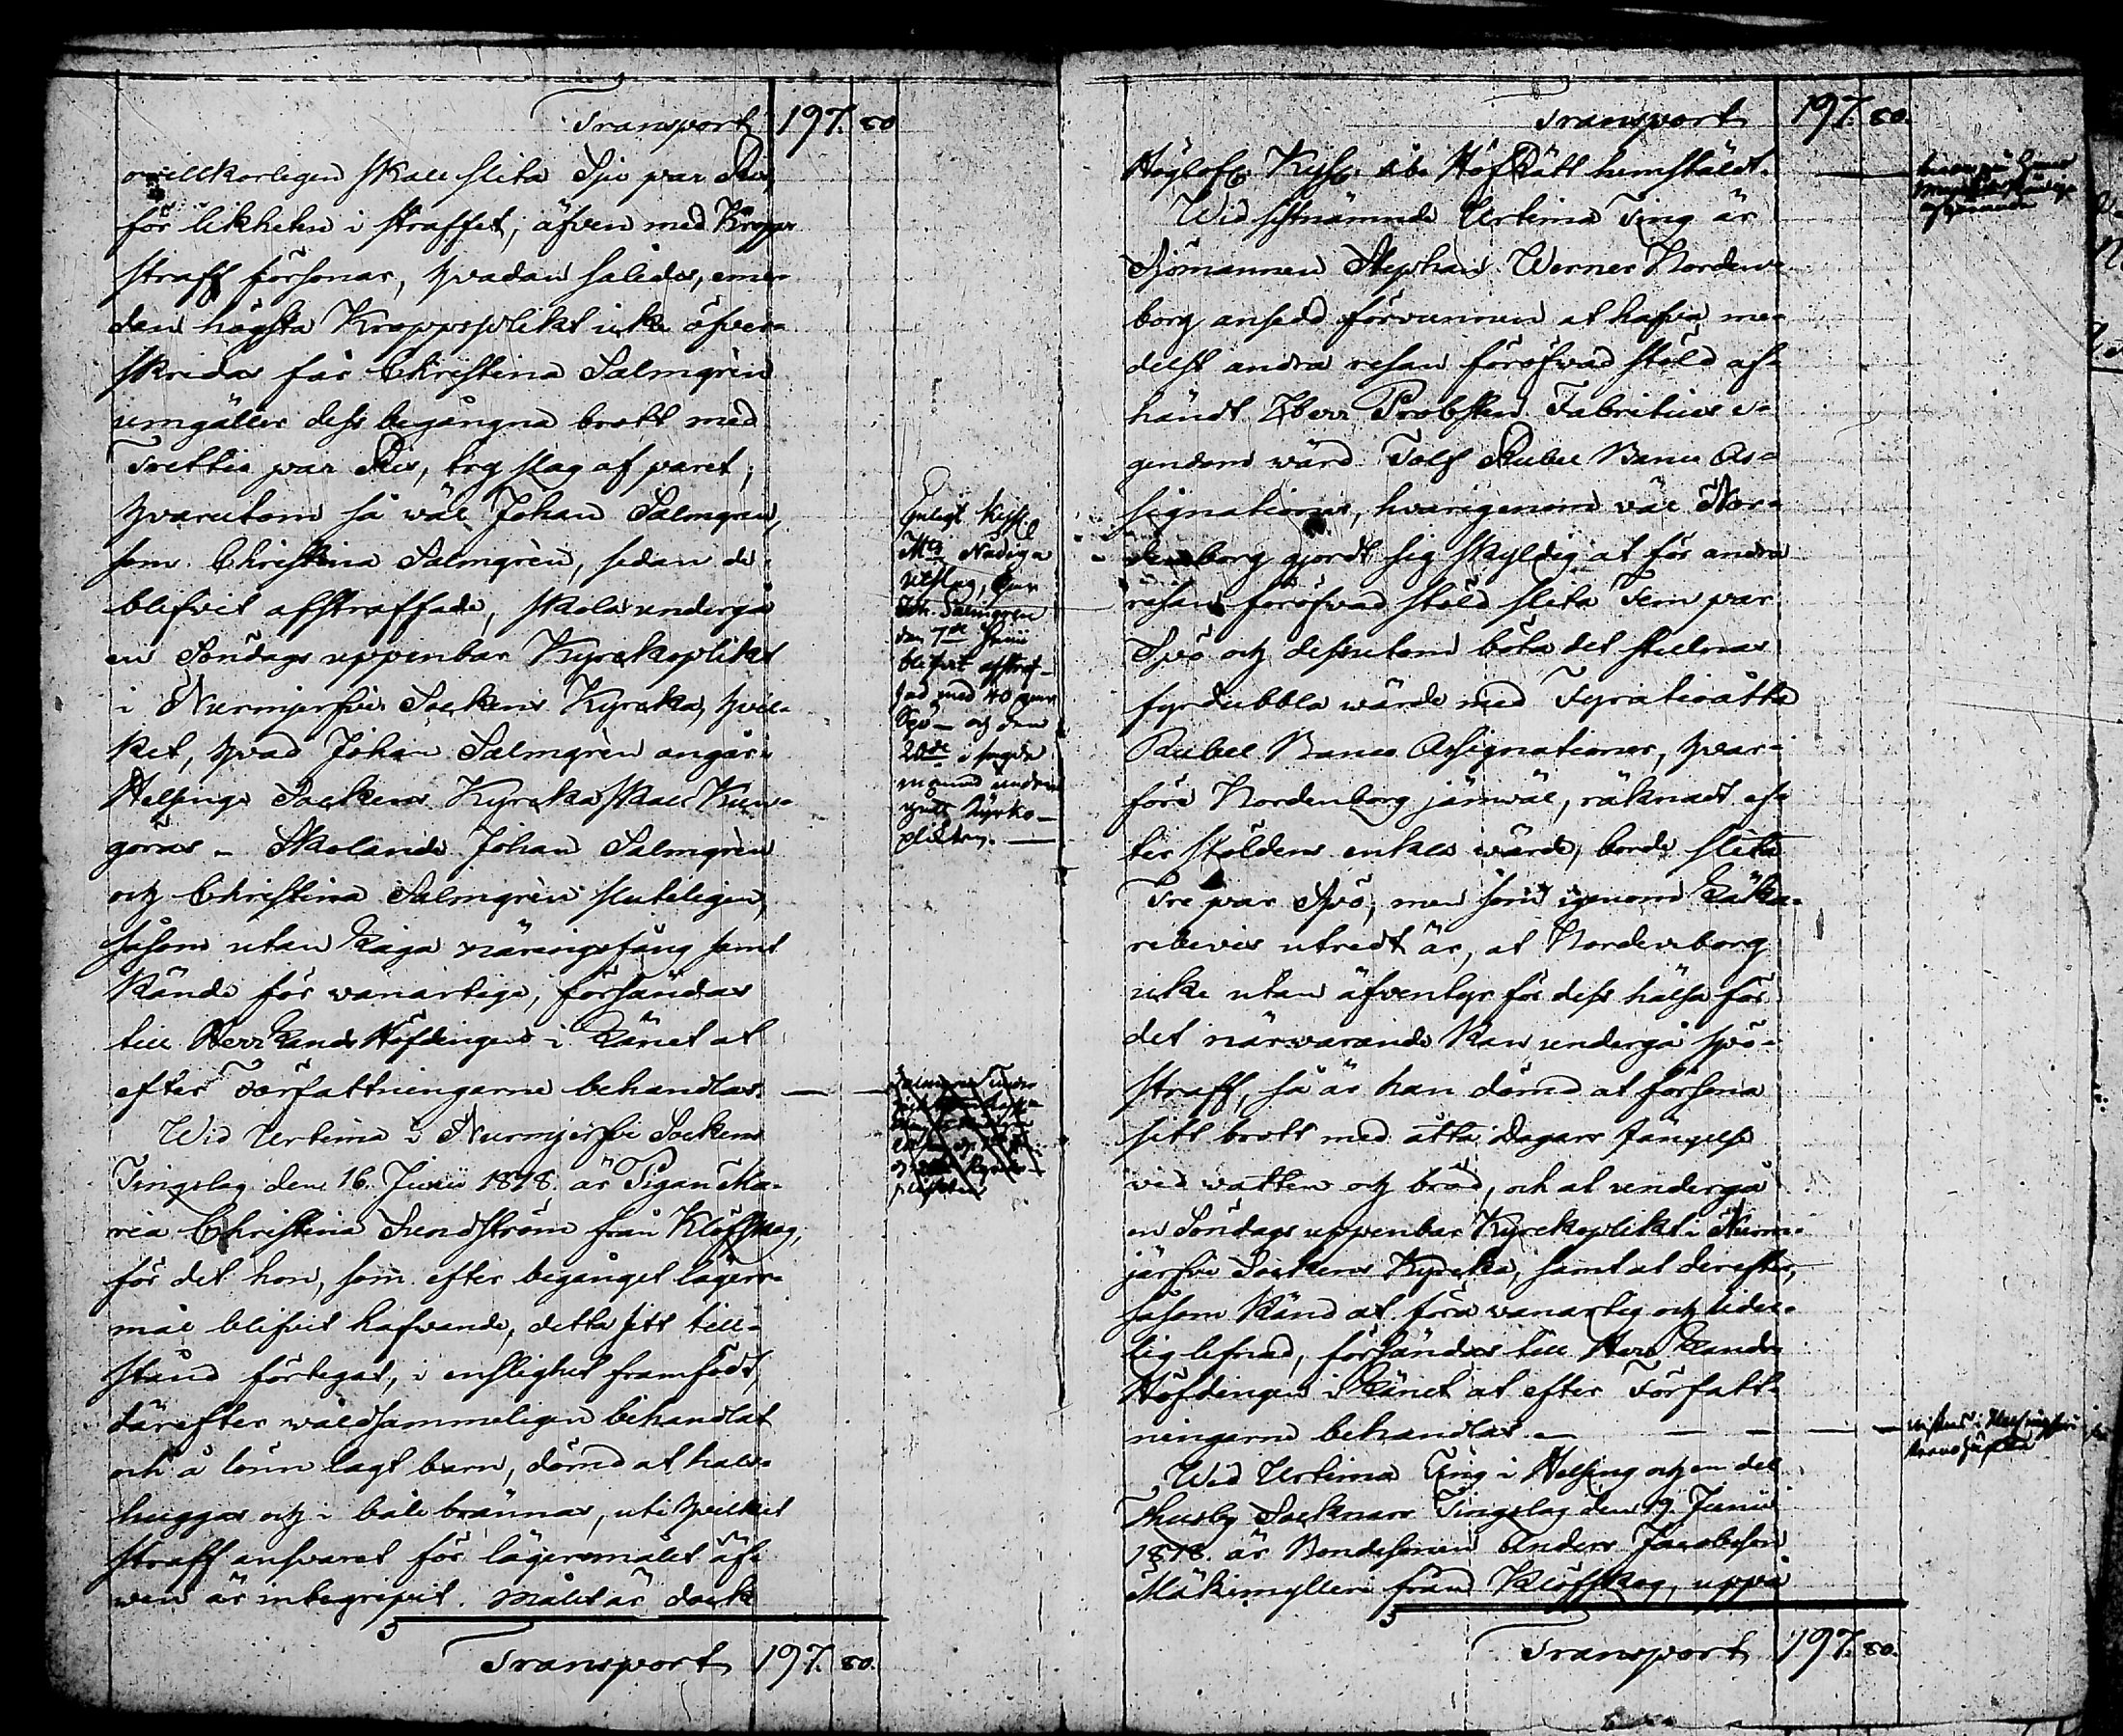 Transport 197. 80
ovillkorligen skall slita Sju par Ris,
för likheten i straffet, äfven med Kropps
straff försonas, hvadan således, eme-
dan högsta Kroppsplikt icke öfver-
skridas får Christina Salmgrèn
umgäller dess begångna brott med
Trettio par Ris, try slag af paret;
hvarutom så wäl Johan Salmgrèn,
som Christina Salmgrèn, sedan de
blifvit afstraffade, skola undergå
en Söndags uppenbar Kyrckoplikt
i Nurmijerfvi Sockens Kyrcka, hvil-
ket, hvad Johan Salmgrèn angår i
Helsinge Sockens Kyrcka skall Kun-
göras - Skolande Johan Salmgrèn
och Christina Salmgrèn sluteligen,
såsom utan Laga näringsfång samt
kände för vanartige, försändas
till Herr Lands Höfdingen i Länet at
efter Författningarne behandlas.
Wid Urtima i Nurmijerfvi Sockens
Tingslag den 16. Junii 1818. är Pigan Ma-
ria Christina Sundström från Klöfskog,
för det hon, som efter begånget lägers-
mål blifvit hafvande, detta sitt till-
stånd förtegat, i enslighet framfödt,
därefter wåldsammeligen behandlat
och å lönn lagt barn, dömd at hals-
huggas och i båle brännas, uti hvilket
straff ansvaret för lägersmålet äf-
wen är inbegripit. Målet är dock
Transport 197. 80.
Enligt Kejsl
Mts Nådiga
utslag, har
Joh. Salmgren
den 7de Junii
blifvit afstraf-
fad med 40 par
Spö - och den
20de i samma
månad under-
gått Kyrko-
plikten.
Transport 197. 80.
Höglofl. Kejserl. Åbo HofRätt hemstäldt.
Wid sistnämnde Urtima Ting är
Sjömannen Stephan Werner Norden-
borg ansedd förvunnen at hafva me-
delst andra resan föröfvad stöld af-
händt Herr Probsten Fabritius e-
gendom wärd Tolf Rubel Banco As-
signationer, hvarigenom väl Nor-
denborg gjordt sig skyldig at för andra
resan föröfvad stöld slita Fem par
Spö och dessutom böta det stulnas
fyrdubbla wärde med Fyratioåtta
Rubel Banco Assignationer, hvar-
före Nordenborg jämwäl, räknadt ef-
ter stöldens enkla wärde, borde slita
Tre par Spö; men som igenom Läka-
rebevis utredt är, at Nordenborg
icke utan äfventyr för dess hälsa för
det närvarande kan undergå spö-
straff, så är han dömd at försona
sitt brott med åtta dagars fängelse
vid vatten och bröd, och at undergå
en Söndags uppenbar Kyrckoplikt i Nurmi-
järfvi Sockens Kyrcka, samt at derefter,
såsom känd at föra vanartig och lider-
lig lefnad, försändas till Herr Lands
Höfdingen i Länet at efter Författ-
ningarne behandlas.
Wid Urtima Ting i Helsing och en del
Thusby Socknars Tingslag den 19. Junii
1818. är Bondesonen Anders Jacobsson
Mäkimylleri från Klöfskog, uppå
Transport 197. 80.